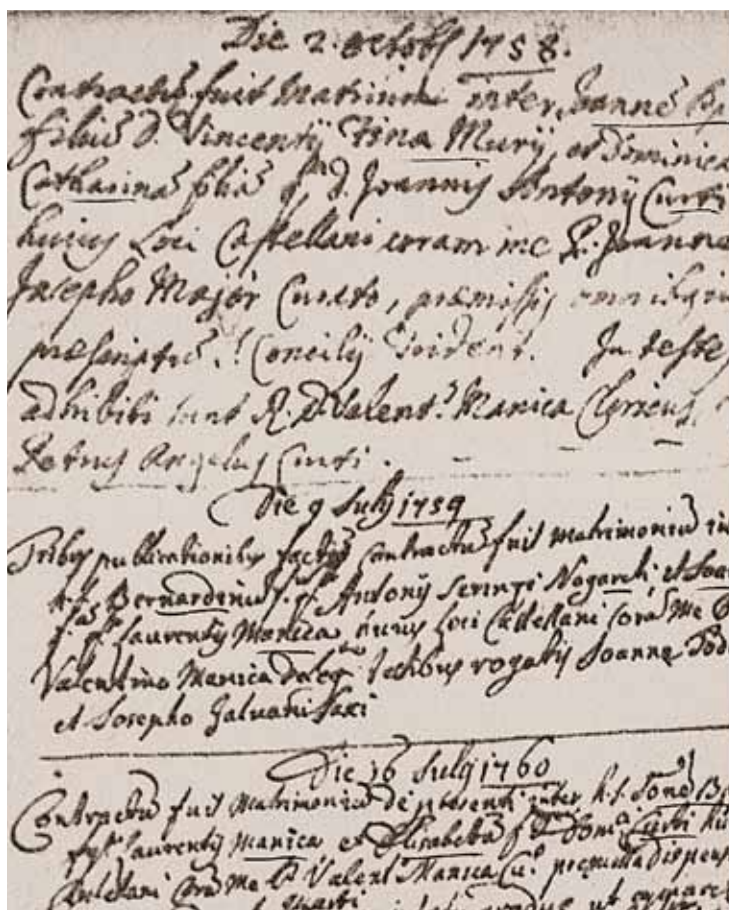 Die 2. octob 1758.
Contractũ fuit Matrimon inter Joannẽ Ba
filiũ d. Vincentij Tina Murij, et Dominica
Catharinã filiã qm d. Joannis Antonij Curti
huius Loci Castellani coram me P. Joanne
Josepho Major Curato, præmissis omnibus
prescriptis Concilij Trident. In testes
adhibiti sunt R. d. Valent. Manica Clericus,
Petrus Angelus Curti.
Die 9 Julij 1759
Tribus publicationibus factis Contractũ fuit matrimoniũ in
Bernardinũ f. qm Antonij Nogareti et Joa
f. qm Laurentij Monica huius Loci Castellani Corã me P
Valentino Manica deleg testibus rogatis Joanne Tod
et Josepho Galvani
Die 16 Julij 1760
Contractũ fuit Matrimoniũ de presenti inter
Laurentij Manica et Elisabetã Curti hu
Castelani Corã me P Valent Manica Cu.